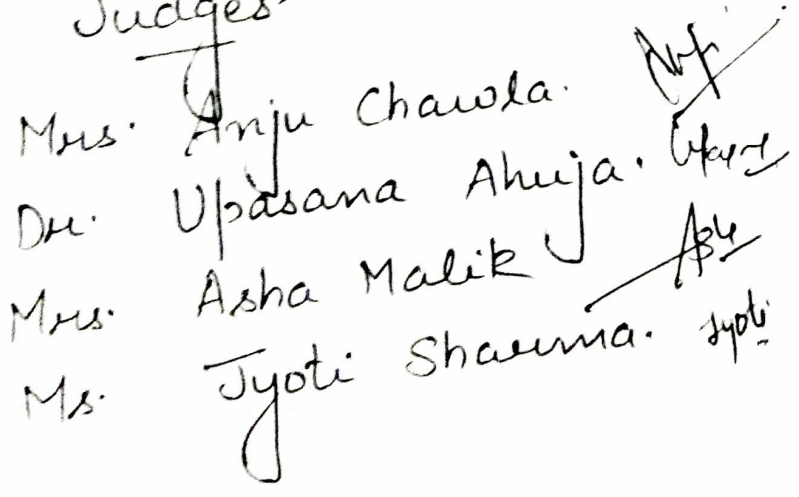 Judges
Mrs. Anju Chawla.
Dr. Upasana Ahuja.
Mrs. Asha Malik
Ms. Jyoti Sharma. Jyoti